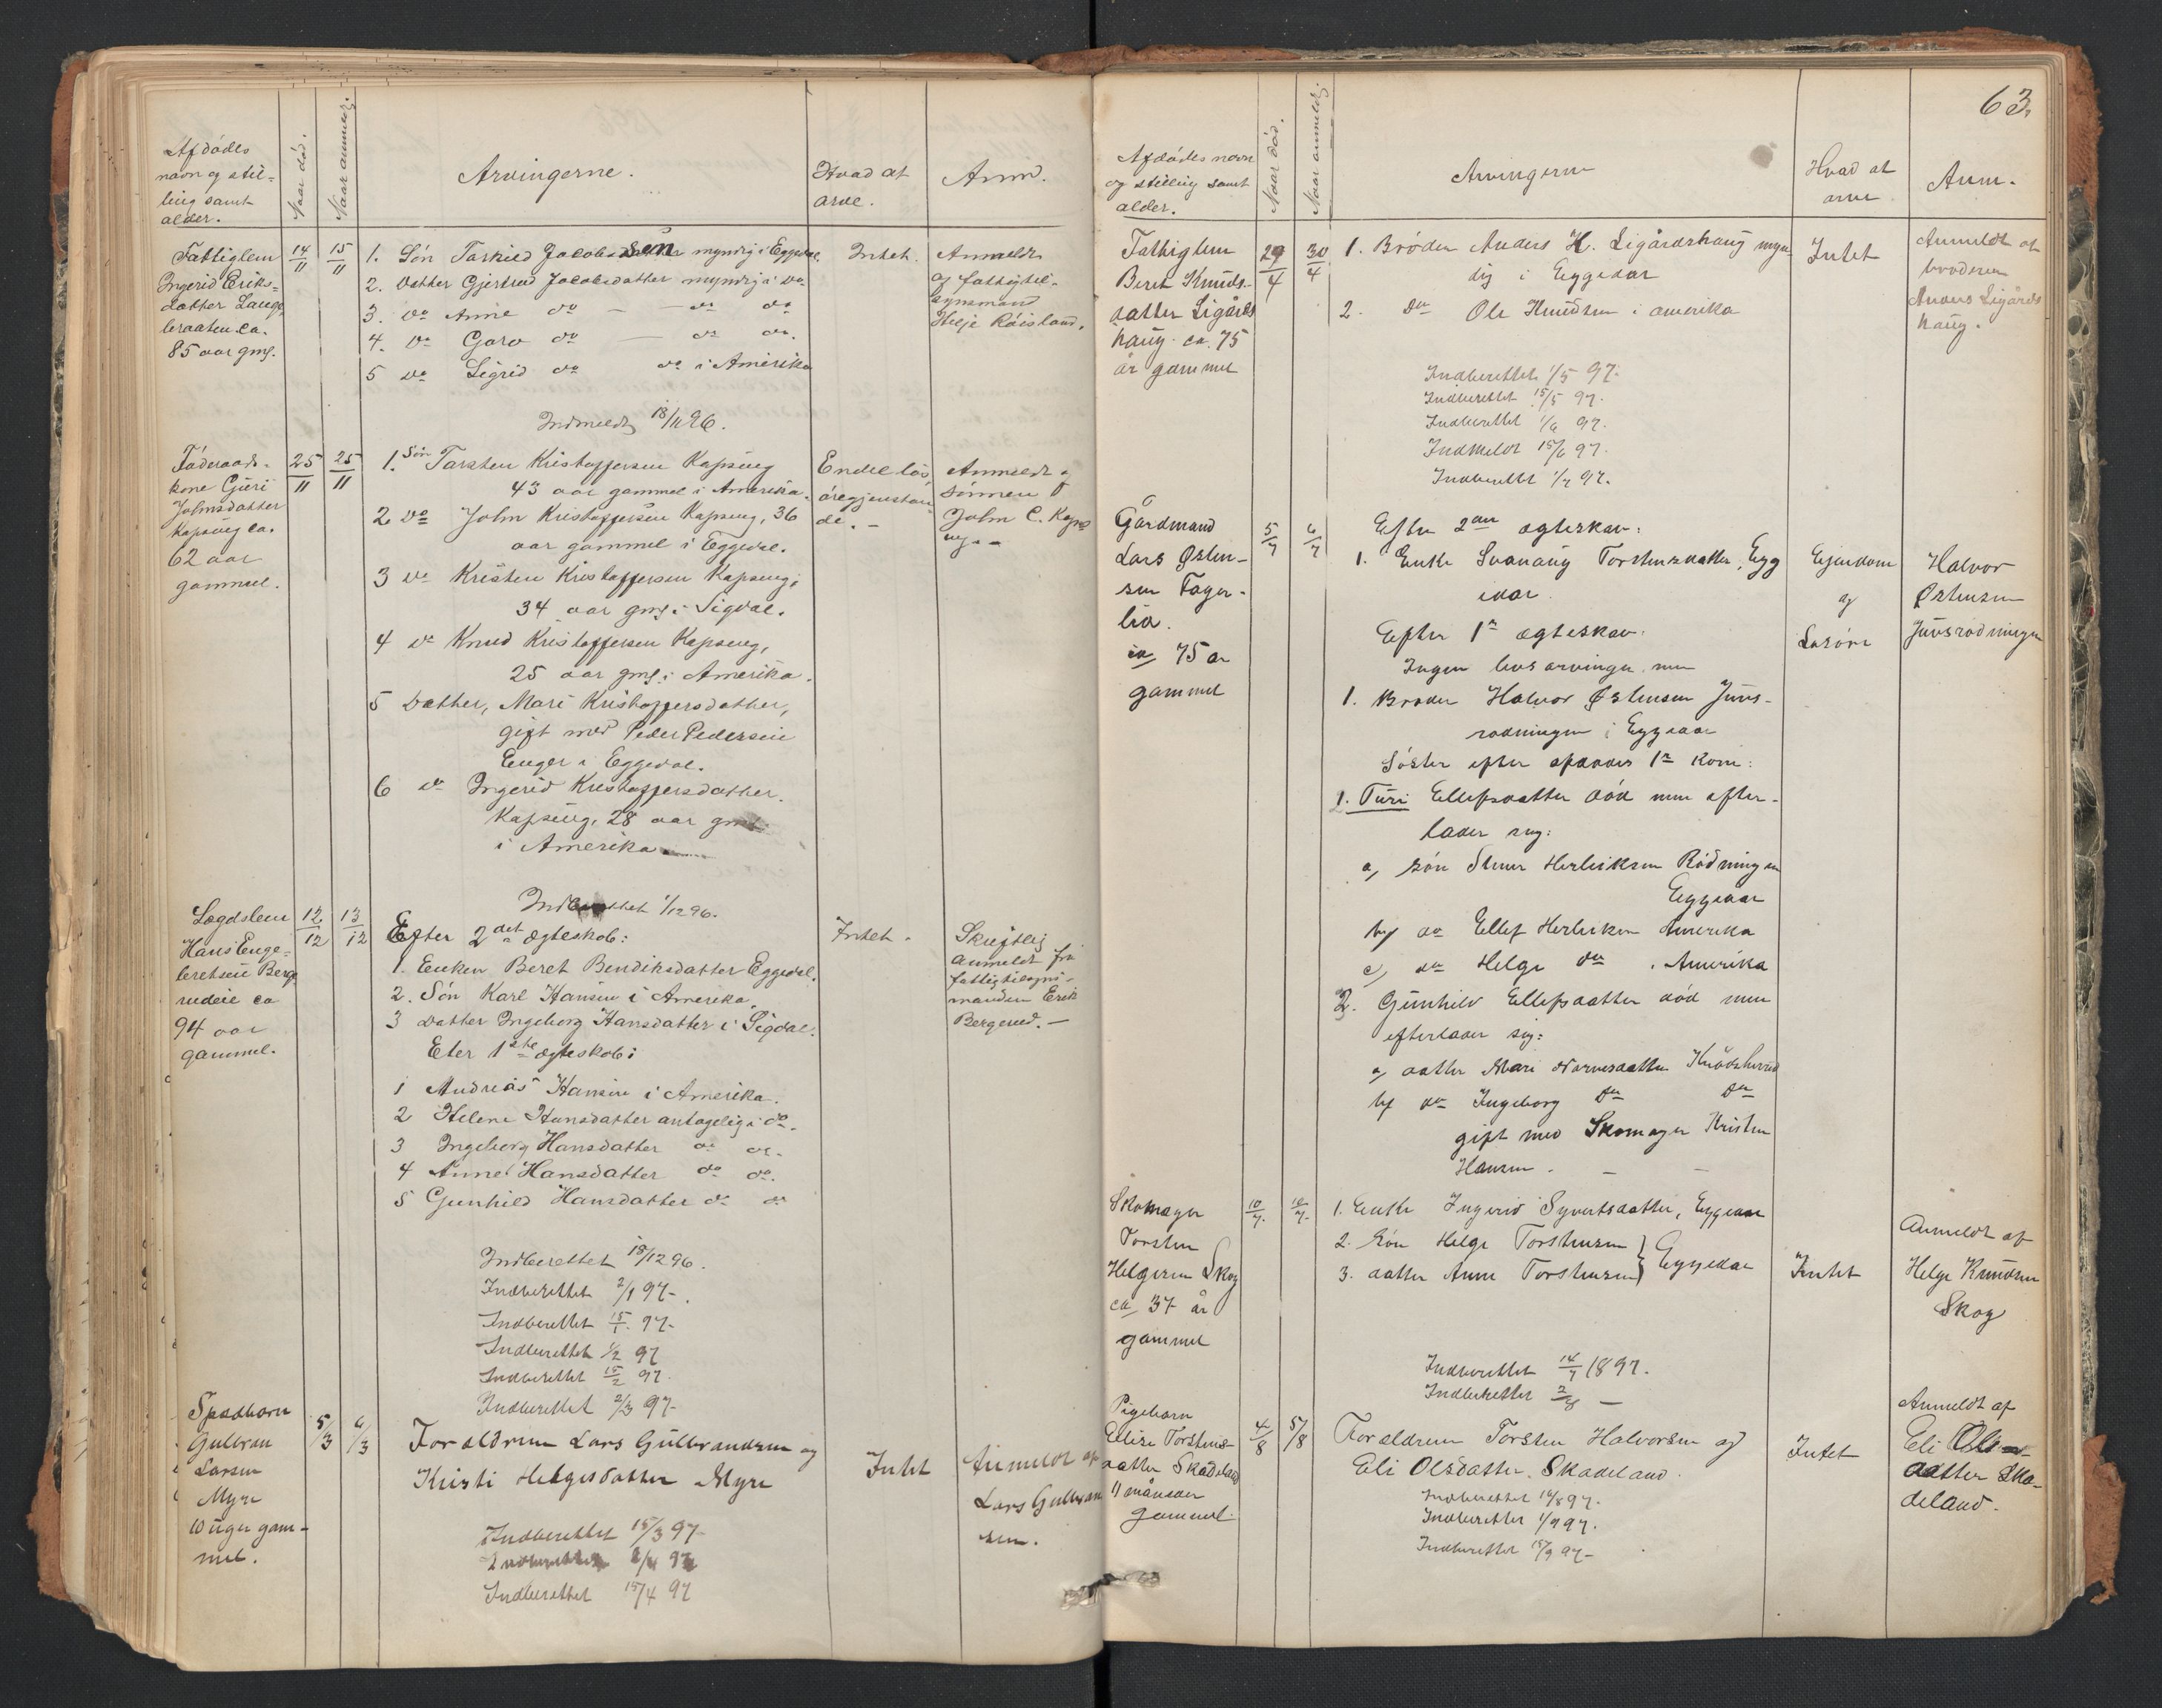 Afdødes
navn og stil-
ling samt
alder.
Naar død.
Naar anmeldg.
Arvingerne.
Hvad at
arve.
Anm.
Fattiglem
Ingerid Eriks-
datter Lange
braaten ca.
85 aar gmf.
14/11
15/11
1. Søn Tarkild Jacobssen myndig i Eggedal.
2. Datter Gjertrud Jacobsdatter myndig i do
3. do Anne do — do do
4. do Goro do — do do.
5 do Sigrid do do i Amerika
Intet.
Anmeldt
af fattigtil-
synsmand
Helje Røisland.
Indmeldt 18/11 96.
Føderaads-
kone Guri
Johnsdatter
Kapseng ca.
62 aar
gammel.
25/11
25/11
1. Søn Tarsten Kristoffersen Kapseng
43 aar gammel i Amerika.
2 do John Kristoffersen Kapseng, 36
aar gammel i Eggedal.
3 do Kristen Kristoffersen Kapseng,
34 aar gmf i Sigdal.
4 do Knud Kristoffersen Kapseng,
25 aar gmf i Amerika.
5 Datter, Mari Kristoffersdatter,
gift med Peder Pedersen
Enger i Eggedal.
6 do Ingerid Kristoffersdatter
Kapseng, 28 aar gml
i Amerika
Endel løs
øregjenstan
de. -
Anmeldt af
sønnen
John C. Kaps
eng. -
Indberettet 1/12 96.
Lægdslem
Hans Enge-
bretsen Berg
rudeie ca
94 aar
gammel.
12/12
13/12
Efter 2det ægteskab:
1. Enken Beret Bendiksdatter Eggedal.
2. Søn Karl Hansen i Amerika.
3 Datter Ingeborg Hansdatter i Sigdal.
Eter 1ste ægteskab:
1 Andreas Hansen i Amerika.
2 Helene Hansdatter antagelig i do.
3 Ingeborg Hansdatter do do.
4 Anne Hansdatter do do.
5 Gunhild Hansdatter do do
Intet.
Skriftlig
Anmeldt fra
fattigtilsyns-
manden Erik
Bergerud. —
Indberettet 15/12 96.
Indberettet 2/1 97.
Indberettet 15/1. 97-
Indberettet 1/2 97
Indberettet 15/2 97.
Indberettet 2/3 97-
Spædbarn
Gulbran
Larsen
Myre
10 uger gam-
mel.
5/3
6/3
Foraldrene Lars Gulbrandsen og
Kristi Helgesdatter Myre
Intet
Anmeldt af
Lars Gulbran
sen.
Indberettet 15/3 97
Indberettet 2/4 97
Indberettet 15/4 97
63.
Afdødes navn
og stilling samt
alder.
Naar død.
Naar anmeldg.
Arvingerne
Hvad at
arve
Anm.
Fattiglem
Beret Knuds-
datter Ligårds
haug ca. 75
år gammel
29/4
30/4
1. Brøder Anders K. Ligårdshaug myn
dig i Eggedal
2. do Ole Knudsen i amerika
Intet
Anmeldt af
broderen
Anders Ligårds
haug.
Indberettet 1/5 97.
Indberettet 15/5 97.
Indberettet 1/6 97.
Indmeldt 15/6 97.
Indberettet 1/7 97.
Gårdmand
Lars Østen-
sen Fager-
lia.
ca 75 år
gammel
5/7
6/7
Efter 2det ægteskav:
1. Enke Svanaug Torstensdatter, Egg
edal
Efter 1ste ægteskav:
Ingen livsarvinger men
1. Broder Halvor Østensen Juvs-
rødningen i Eggedal
Søster efter afdødes 1ste kone:
1. Turi Ellefsdatter død men efter-
lader seg:
a, søn Steen Herleiksen Rødningen
Eggedal
b, do Ellef Herleiksen Amerika
c, do Helge do . Amerika
2. Gunhild Ellefsdatter død men
efterlader sig:
a, datter Mari Narvesdatter Krødsherred
b, do Ingeborg do do
gift med Skomager Kristen
Hansen. — —
Ejendom
og
Løsøre
Halvor
Østensen
Juvsrødningen
Skomager
Torsten
Helgesen Skog
ca 37 år
gammel
10/7.
12/7.
1. Enke Ingerid Syvertsdatter, Eggedal
2. Søn Helge Torstensen
3. datter Anne Torstensen } Eggedal
Intet
Anmeldt af
Helge Knudsen
Skog
Indberettet 14/7 1897.
Indberettet 2/8 —
Pigebarn
Ellise Torstens-
datter Skadeland
11 måneder
gammel.
4/8
5/8
Foraldrene Torsten Halvorsen og
Eli Olsdatter. Skadeland.
Intet
Anmeldt af
Eli Ols
datter Ska-
deland.
Indberettet 16/8 97.
Indberettet 1/9 97.
Indberettet 15/9 97-